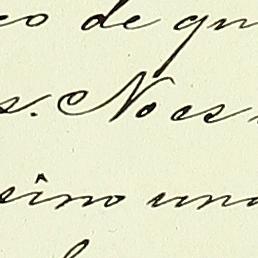 co de qu
s. No es
sino una